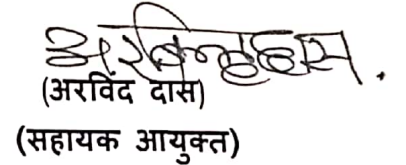 अरविन्द दास.
(अरविंद दास)
(सहायक आयुक्त)